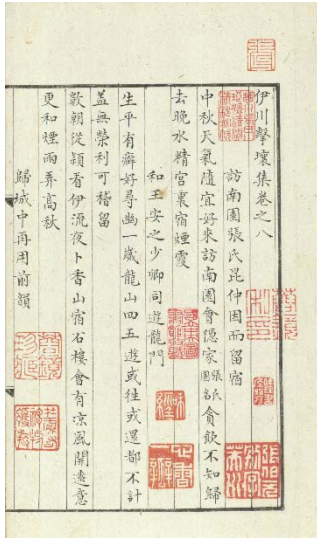 伊川擊壤集卷之八
訪南園張氏昆仲因而留宿
中秋天氣隨宜好來訪南園會隱家張氏園名貪飲不知歸
去晚水精宮裏宿煙霞
和王安之少卿同遊龍門
生平有癖好尋幽一歲龍山四五遊或往或還都不計
蓋無榮利可稽留
歡朝從潁看伊流夜卜香山宿石樓會有涼風開遠意
更和煙雨弄高秋
歸城中再用前韻